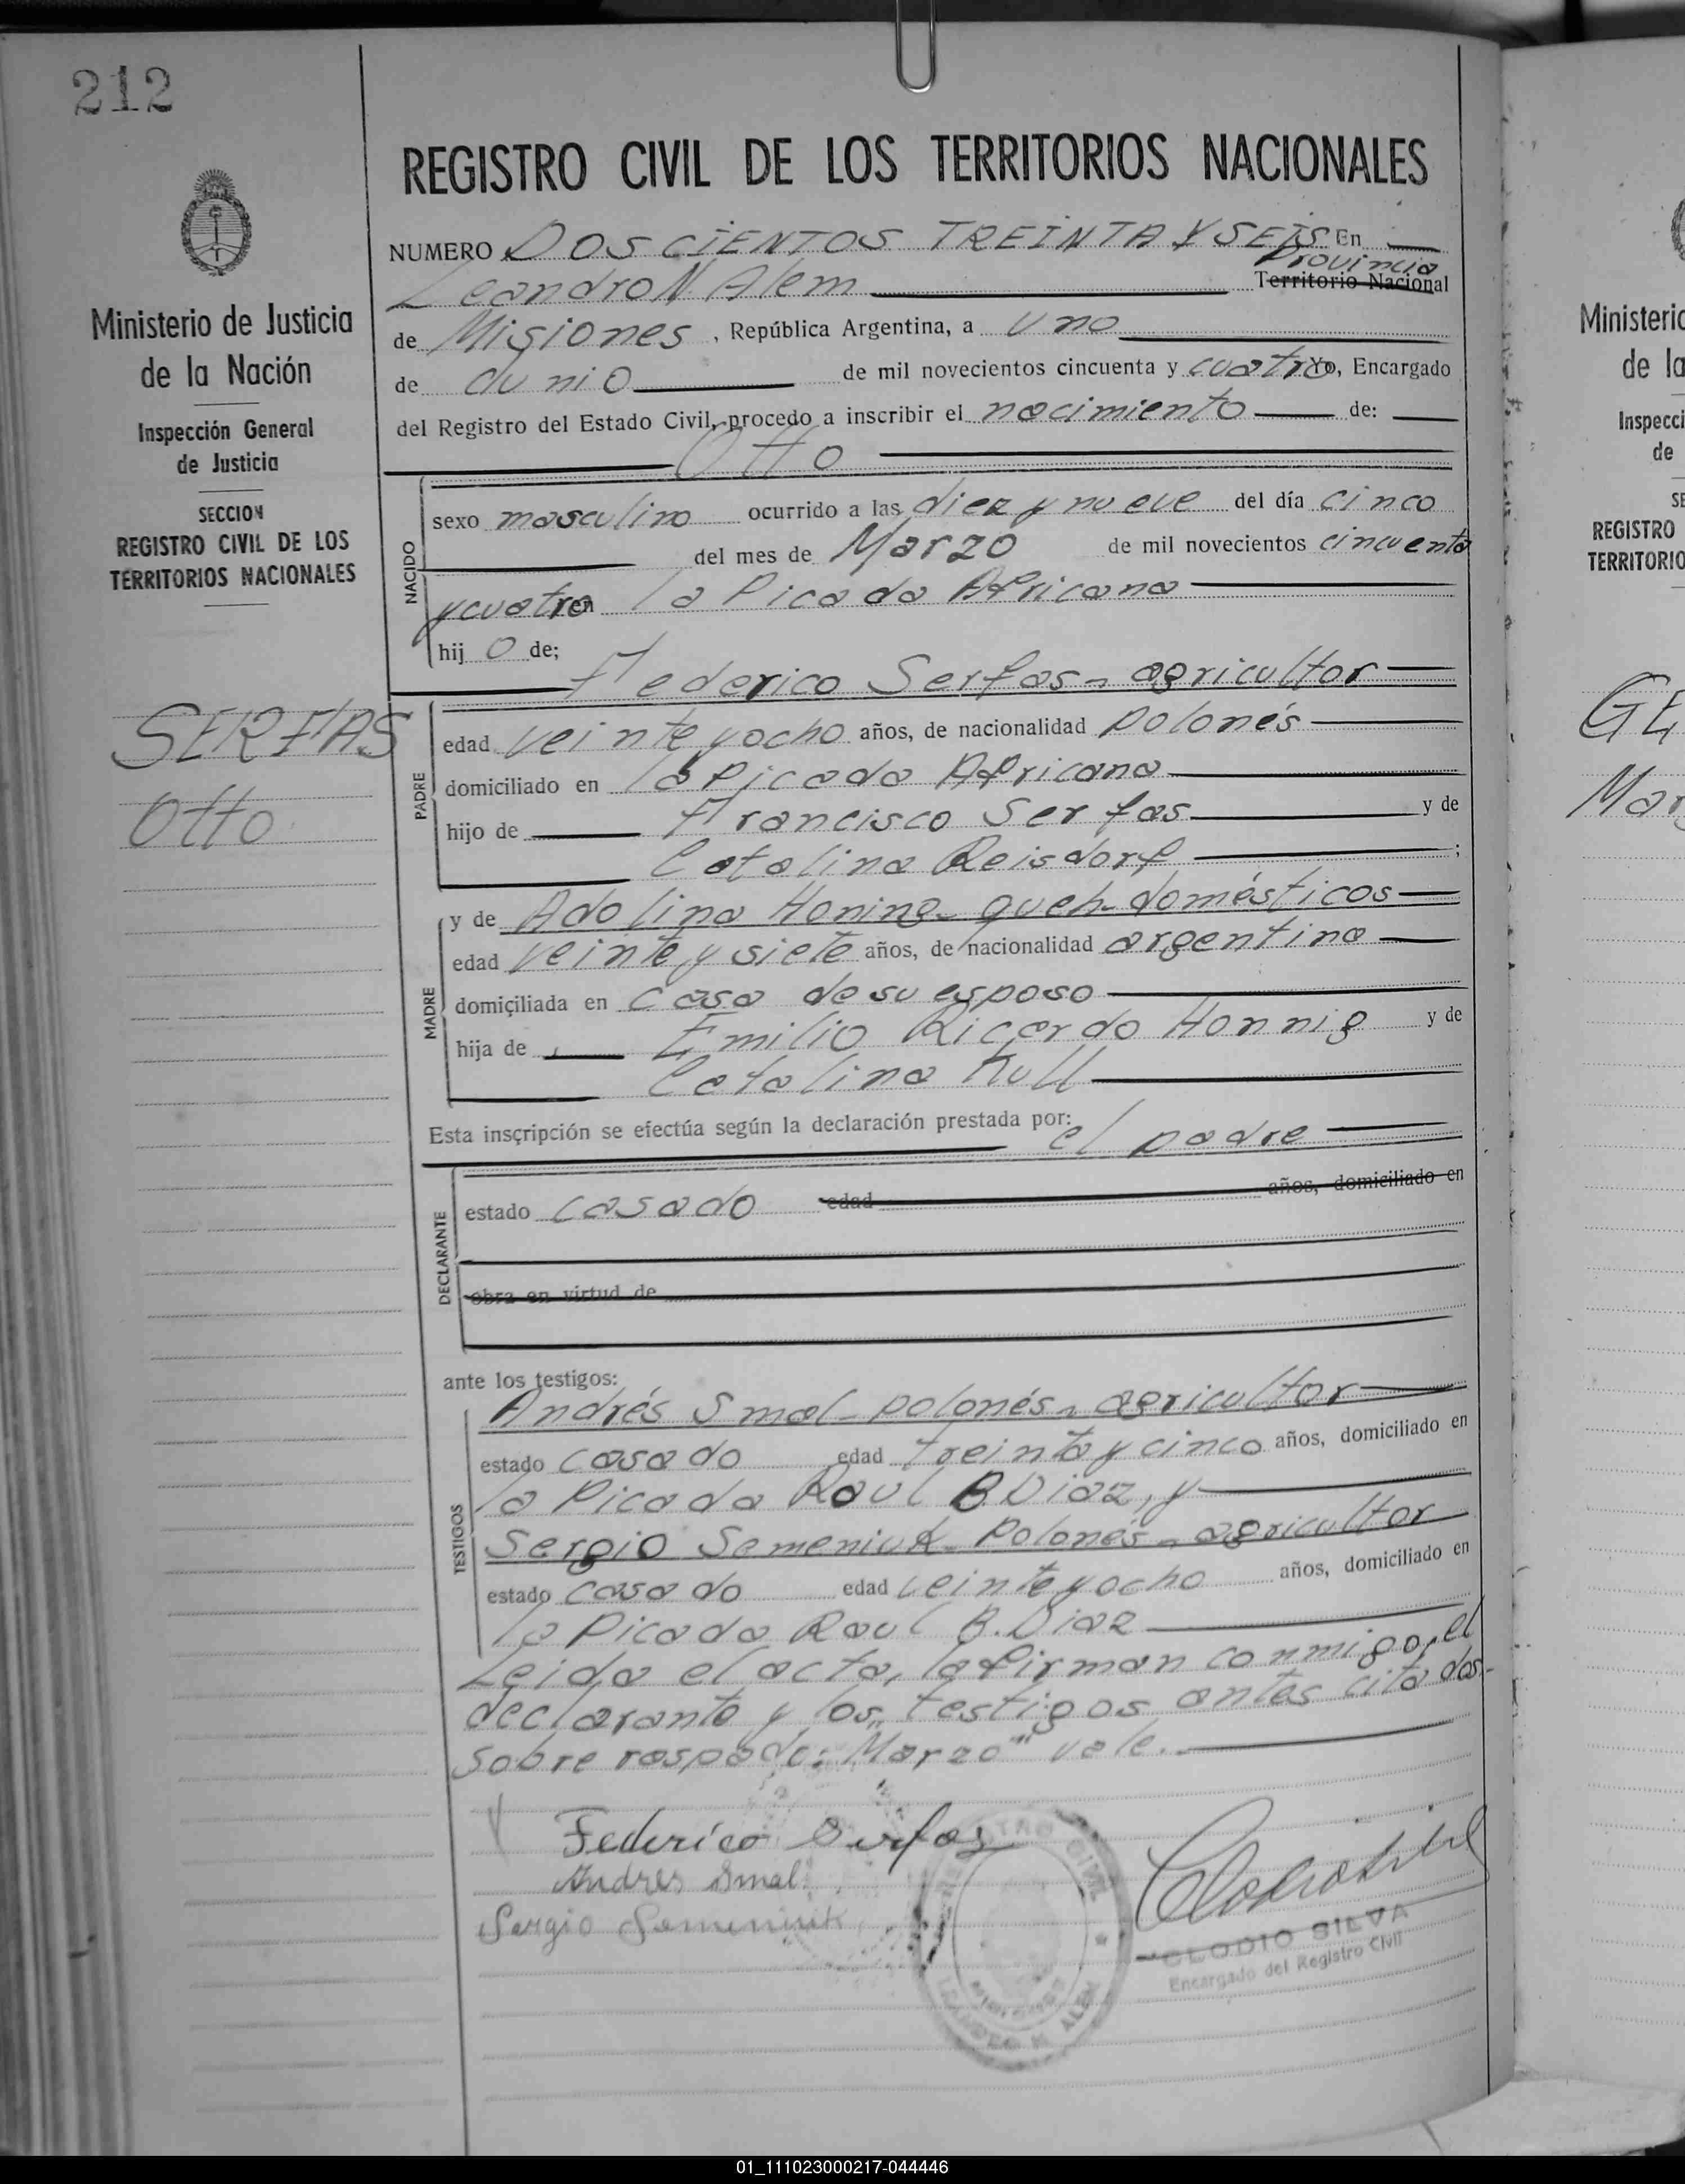 212
REGISTRO CIVIL DE LOS TERRITORIOS NACIONALES
NUMERO DOSCIENTOS TREINTA Y SEIS En
Provincia
Leandro N. Alem Territorio Nacional
de Misiones, República Argentina, a uno
de Junio de mil novecientos cincuenta y cuatro Yo, Encargado
del Registro del Estado Civil, procedo a inscribir el nacimiento de:
Otto
NACIDO
sexo masculino ocurrido a las diez y nueve del día cinco
del mes de Marzo de mil novecientos cincuenta
y cuatro en la Picada Africana
hijo de;
Federico Serfas - agricultor
PADRE
edad veinte y ocho años, de nacionalidad polonés
domiciliado en la Picada Africana
hijo de Francisco Serfas y de
Catalina Reisdorf ;
MADRE
y de Adolina Honing - queh. domésticos
edad veinte y siete años, de nacionalidad argentina
domiciliada en casa de su esposo
hija de Emilio Ricardo Honnig y de
Catalina Kull
Esta inscripción se efectúa según la declaración prestada por:
el padre
DECLARANTE
estado casado edad años, domiciliado en
obra en virtud de
ante los testigos:
TESTIGOS
Andrés Smal - polonés - agricultor
estado casado edad treinta y cinco años, domiciliado en
la Picada Raul B. Diaz, y
Sergio Semeniuk - Polonés - agricultor
estado casado edad veinte y ocho años, domiciliado en
la Picada Raul B. Diaz
Leida el acta, la firman conmigo, el
declarante y los testigos antes citados.-
Sobre raspado: "Marzo" vale.
Federico Serfas
Andres Smal
Sergio Semeniuk
REGISTRO CIVIL
MISIONES
LEANDRO N. ALEM
CLODIO SILVA
Encargado del Registro Civil
Ministerio de Justicia
de la Nación
Inspección General
de Justicia
SECCION
REGISTRO CIVIL DE LOS
TERRITORIOS NACIONALES
SERFAS
Otto
Ministeric
de la
Inspecci
de
SE
REGISTRO
TERRITORIO
GE
Mar
01_111023000217-044446